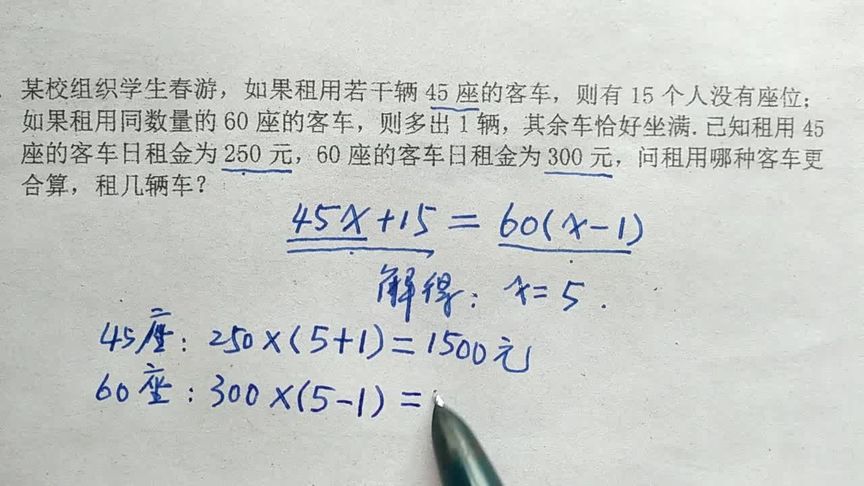 某校组织学生春游，如果租用若干辆 45 座的客车，则有 15 个人没有座位；
如果租用同数量的 60 座的客车，则多出 1 辆，其余车恰好坐满．已知租用 45
座的客车日租金为 250 元，60 座的客车日租金为 300 元，问租用哪种客车更
合算，租几辆车？
45x+15=60(x-1)
解得：x=5．
45座：250×(5+1)=1500元
60座：300×(5-1)=